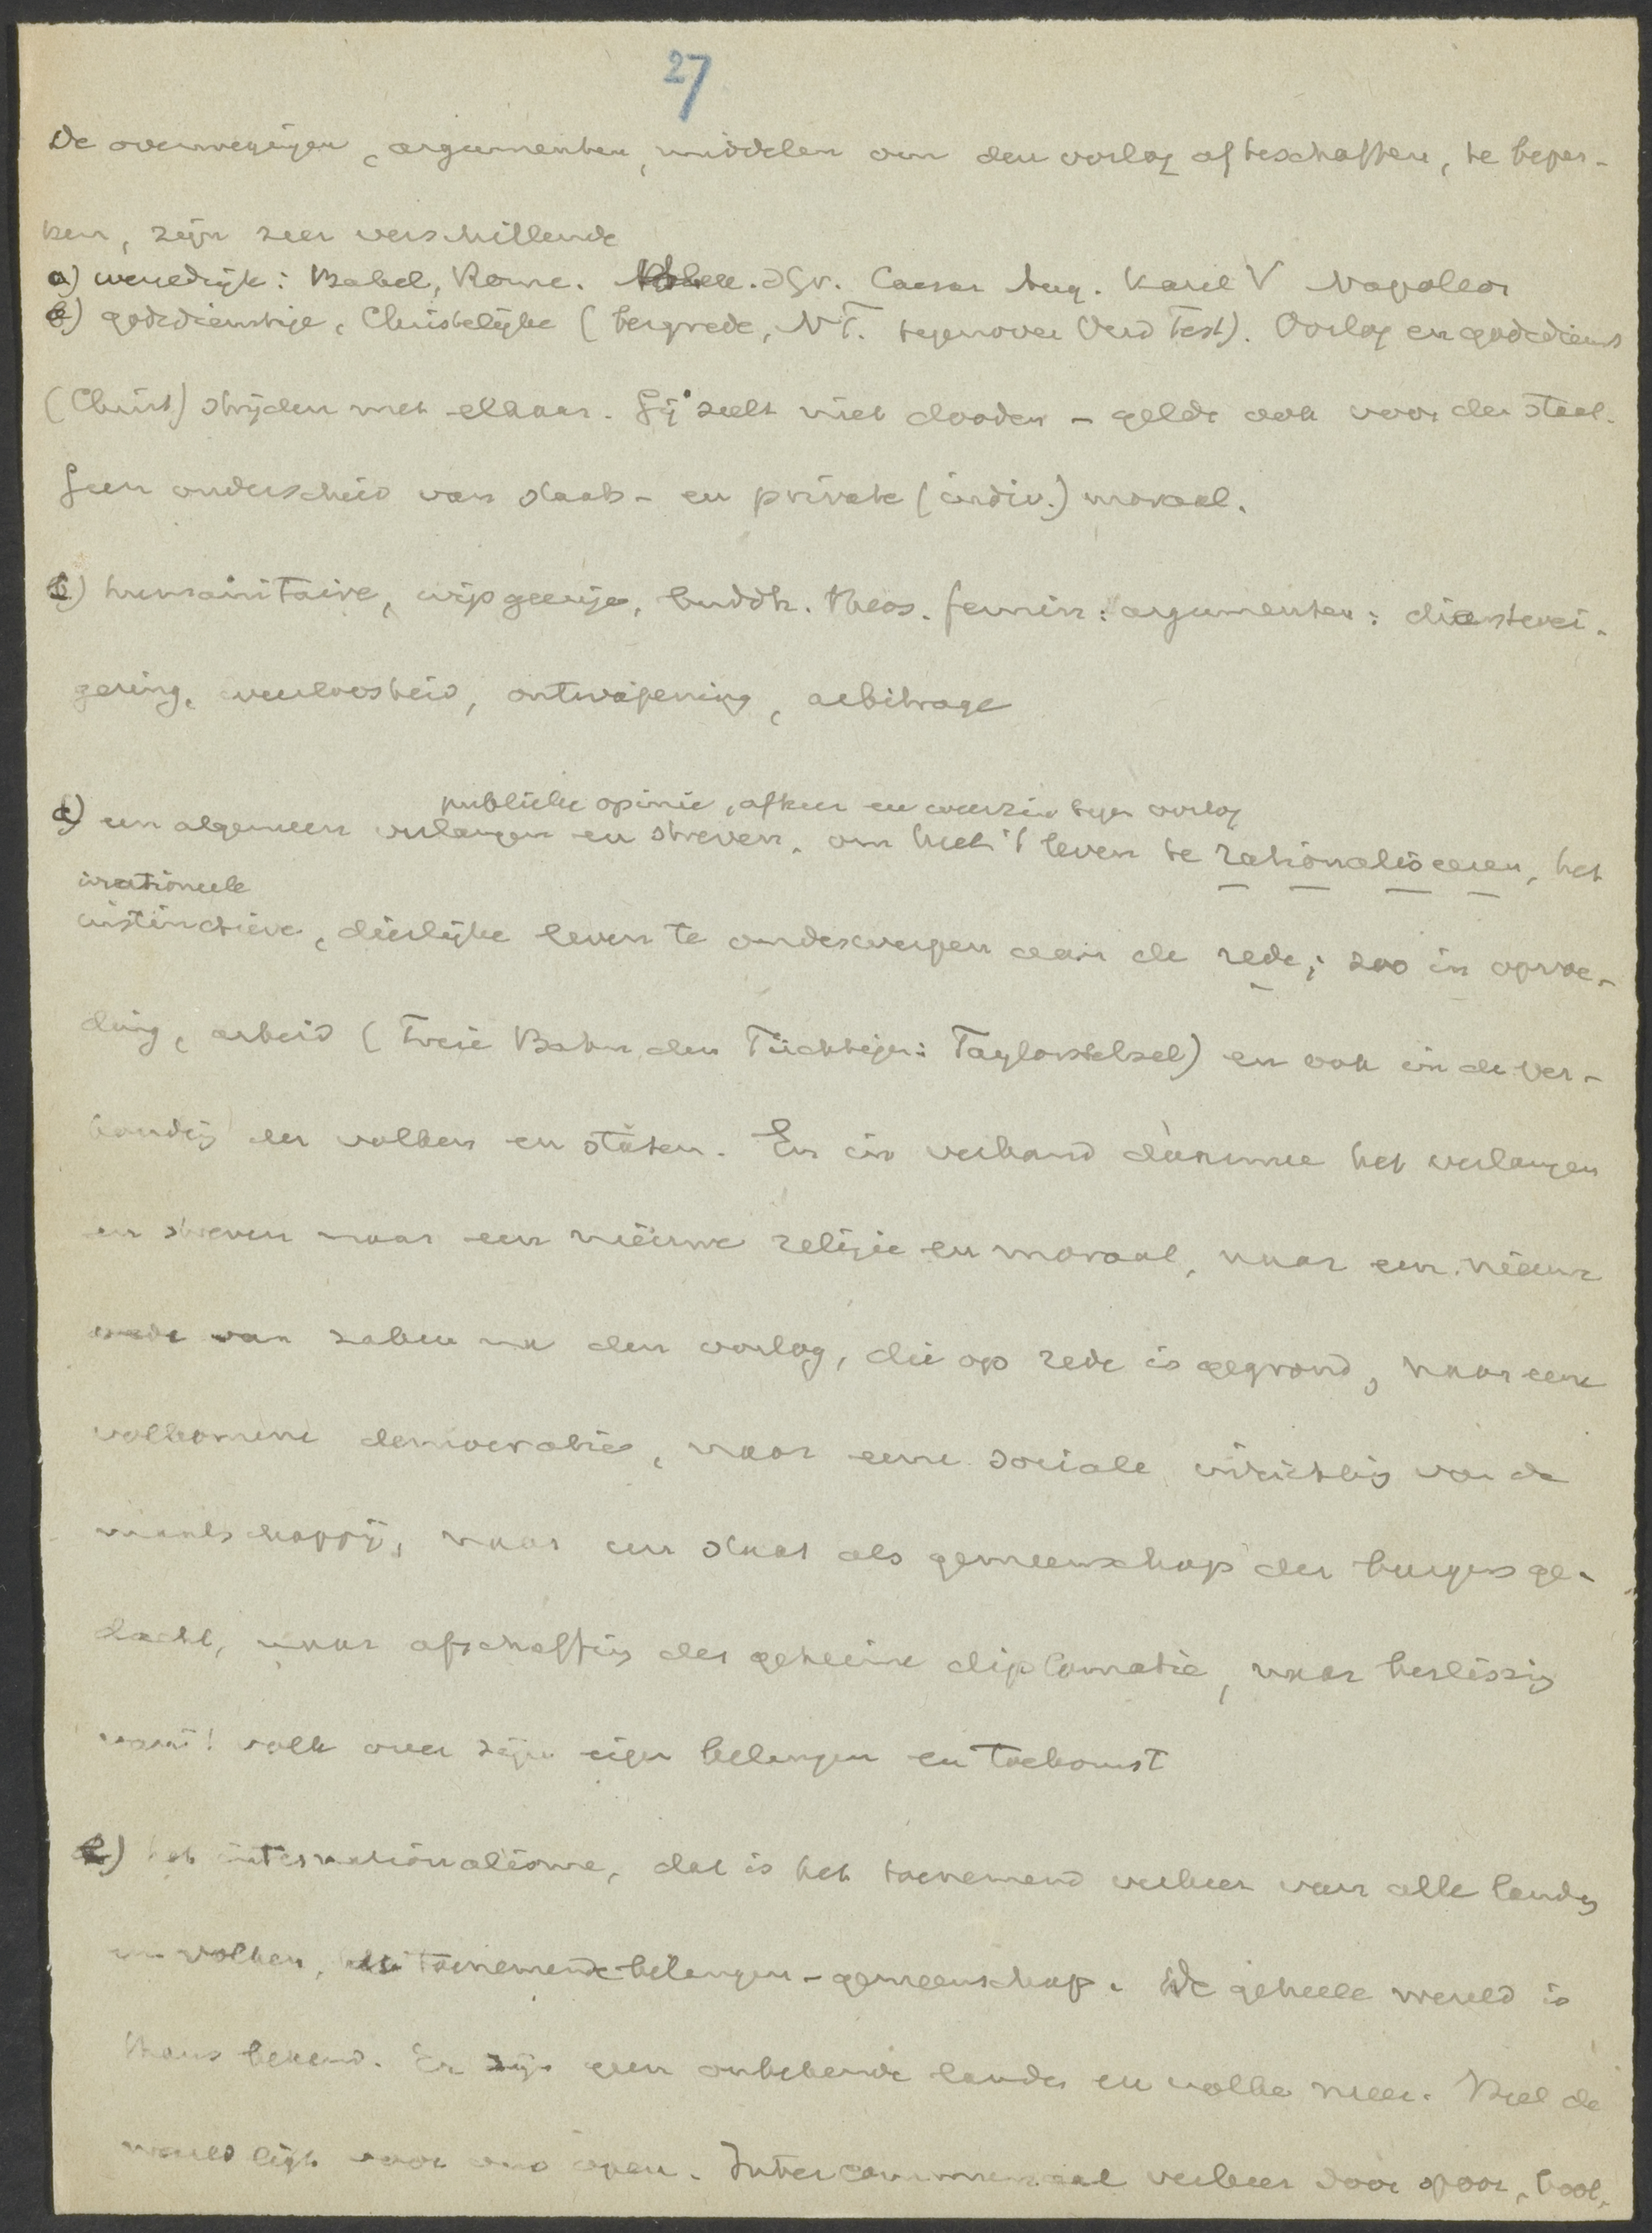 27
De overwegingen, argumenten, middelen om den oorlog afteschaffen, te beper-
ken, zijn zeer verschillende
a) wereldrijk: Babel, Rome. Caesar Aug. Karel V Napoleon
b) godsdienstige, Christelijke (bergrede, N T. tegenover Oud Test). Oorlog en godsdienst
(Christ) strijden met elkaar. Gij zult niet dooden - geldt ook voor den staat.
Geen onderscheid van staats- en private (indiv.) moraal.
humanitaire, wijsgeerige, buddh. theos. femin: argumenten: dienstwei-
gering, weerloosheid, ontwapening, arbitrage
publieke opinie, afkeer en weerzin tegen oorlog
een algemeen verlangen en streven, om heel 't leven te rationaliseeren, het
irrationeele
instinctieve, dierlijke leven te onderwerpen aan de rede; zoo in opvoe-
ding, arbeid (Freie Bahn den Tüchtigen: Taylorstelsel) en ook in de ver-
houding der volken en staten. En in verband daarmee het verlangen
en streven naar een nieuwe religie en moraal, naar een nieuwe
orde van zaken na den oorlog, die op rede is gegrond, naar eene
volkomene democratie, naar eene sociale inrichting van de
maatschappij, naar een staat als gemeenschap der burgers ge-
dacht, naar afschaffing der geheime diplomatie, naar beslissing
van 't volk over zijn eigen belangen en toekomst
het internationalisme, dat is het toenemend verkeer van alle landen
en volken, toenemende belangen-gemeenschap. De geheele wereld is
thans bekend. Er zijn geen onbekende landen en volken meer. Heel de
wereld ligt voor ons open. Intercommunaal verkeer door spoor, boot,